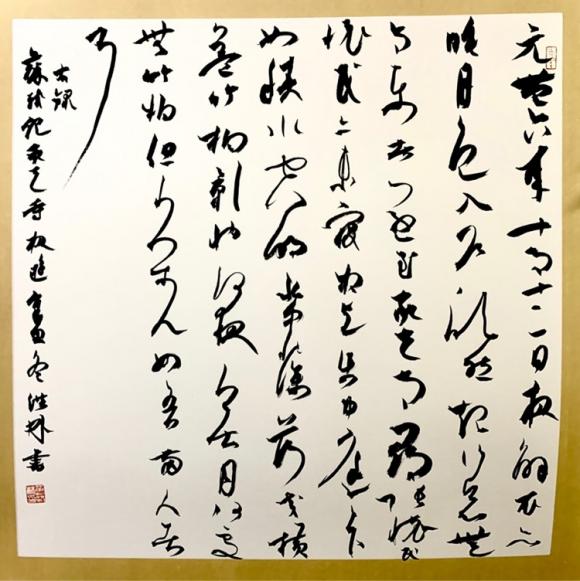 元豐六年十月十二日夜解衣欲
睡月色入戶欣然起行念無
与樂者遂至承天寺尋張懷民
懷民亦未寢相與步於中庭庭下
如積水空明水中藻荇交橫
蓋竹柏影也何夜無月何處
無竹柏但少閑人如吾兩人者
耳
右錄
蘇軾記承天寺夜遊冬書